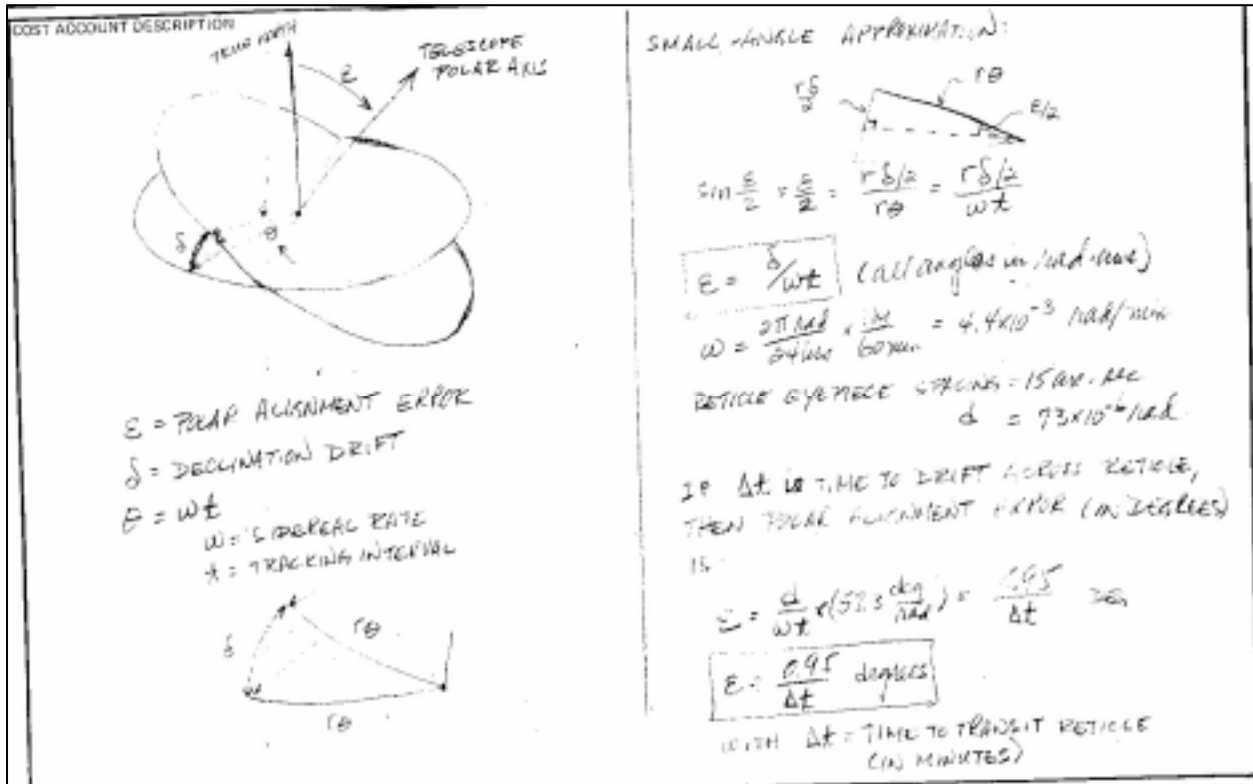 COST ACCOUNT DESCRIPTION
TRUE NORTH
ε
TELESCOPE
POLAR AXIS
δ
θ
ε = POLAR ALIGNMENT ERROR
δ = DECLINATION DRIFT
θ = ωt
ω = SIDEREAL RATE
t = TRACKING INTERVAL
δ
rθ
rθ
SMALL-ANGLE APPROXIMATION:
rδ/2
rθ
ε/2
sin ε/2 = ε/2 = (rδ/2)/rθ = (rδ/2)/ωt
ε = δ/ωt (all angles in radians)
ω = 2π rad/24 hrs × 1h/60 min = 4.4×10⁻³ rad/min
RETICLE EYEPIECE SPACING = 15 arc-sec
d = 73×10⁻⁶ rad
IF Δt is TIME TO DRIFT ACROSS RETICLE,
THEN POLAR ALIGNMENT ERROR (IN DEGREES)
IS
ε = d/ωt × (57.3 deg/rad) = 0.95/Δt DEG
ε = 0.95/Δt degrees
WITH Δt = TIME TO TRANSIT RETICLE
(IN MINUTES)